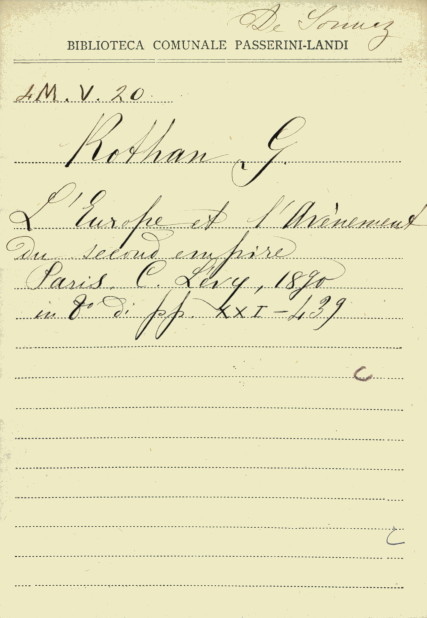 De Sonnaz
BIBLIOTECA COMUNALE PASSERINI-LANDI
4M. V. 20
Rothan G.
L'Europe et l'Avènement
du second empire
Paris. C. Lévy, 1890
in 8° di pp XXI-439
C
C